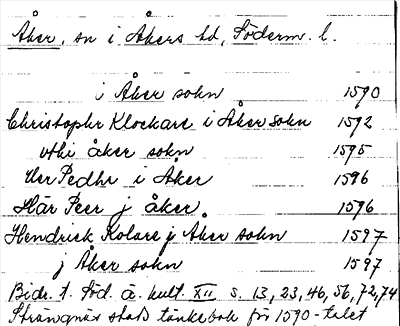 Åker, sn i Åkers hd, Söderm. l.
i Åker sokn 1590
Christopher Klockare i Åker sokn 1592
vthi åker sokn 1595
Her Pedhr i Åker 1596
Häř Peer j åker 1596
Hendrick Kolare j Åker sokn 1597
j Åker sokn 1597
Bidr. t. Söd. ä. kult. XII s. 13, 23, 46, 56, 72, 74
Strängnäs stads tänkebok för 1590-talet